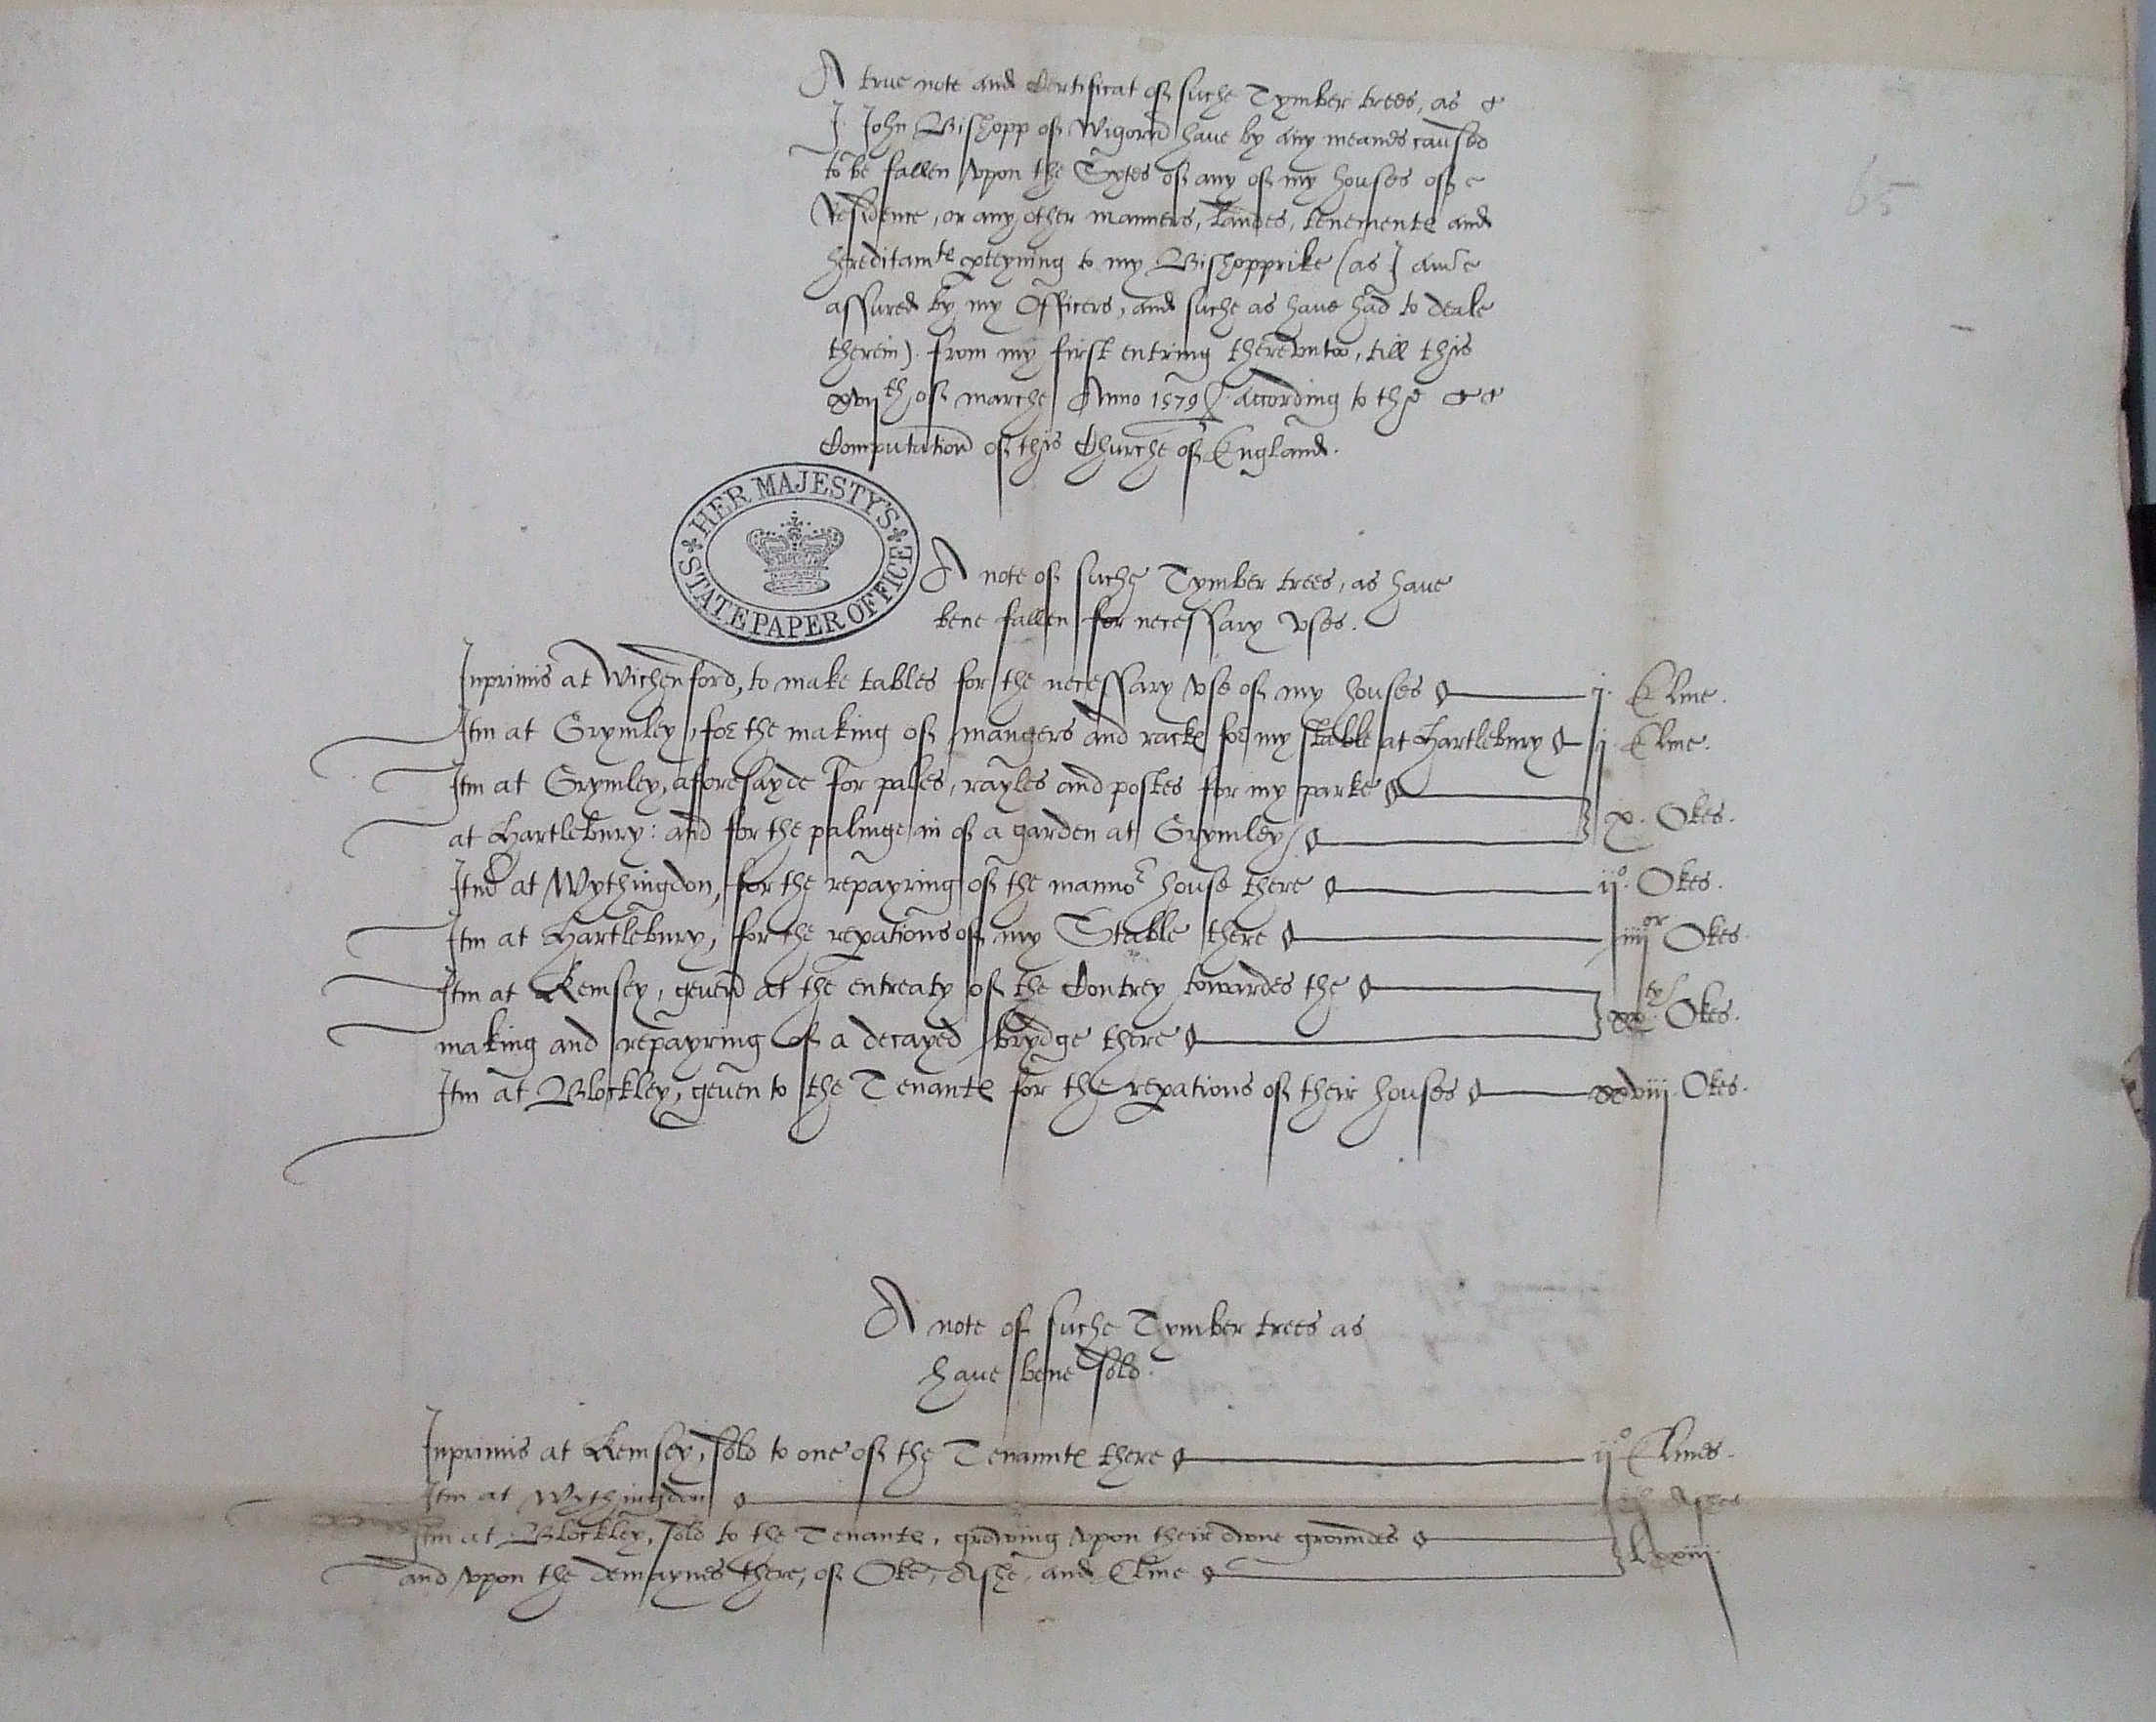 A true note and Certificat of suche Tymber trees, as
I John Bishopp of Wigorn have by any meanes caused
to be fallen vpon the Sytes of any of my houses of
Residence, or any other manners, landes, tenementes and
hereditamtes apteyning to my Bishopprike (as I am
assured by my Officers, and suche as have had to deale
therein) from my first entring therevnto, till this
xvijth of marche Anno 1579 according to the
Computation of this Churche of England.
65
HER MAJESTY'S
STATE PAPER OFFICE
A note of suche Tymber trees, as have
bene fallen for necessary vses.
Inprimis at Wichenford, to make tables for the necessary vse of my houses j. Elme.
Itm at Grymley, for the making of mangers and rackes for my stable at Hartlebury j. Elme.
Itm at Grymley, afforesayde for pales, rayles and postes for my parke
at Hartlebury: and for the palinge in of a garden at Grymley x. Okes.
Itm at Wythingdon, for the repayring of the mannor house there ijo. Okes.
Itm at Hartlebury, for the repations of my Stable there iiijor Okes
Itm at Kemsey, geven at the entreaty of the Contrey towardes the
making and repayring of a decayed brydge there xxty Okes.
Itm at Blockley, geven to the Tenantes for the repations of their houses xxviij. Okes.
A note of suche Tymber trees as
have bene sold.
Inprimis at Kemsey, sold to one of the Tenauntes there ijo Elmes.
Itm at Wythingdon Ashes
Itm at Blockley, sold to the Tenantes, growing vpon their owne groundes
and vpon the demaynes there, of Oke, Ashe, and Elme lxxiij.